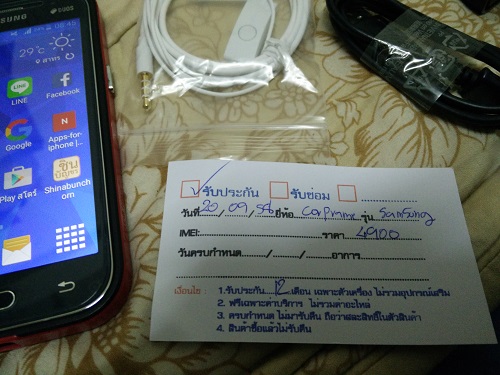 SAMSUNG
DUOS
08:45
29°C
9 สาทร
LINE
Facebook
Google
Apps-for-iphone |...
ชินบัญชร
Play สโตร์
Shinabunchorn
รับประกัน รับซ่อม ....................
วันที่ 20 / 09 / 58 ยี่ห้อ Corprime รุ่น Samsung
IMEI: ราคา 4900
วันครบกำหนด......./......../............อาการ
เงื่อนไข : 1.รับประกัน 12 เดือน เฉพาะตัวเครื่อง ไม่รวมอุปกรณ์เสริม
2. ฟรีเฉพาะค่าบริการ ไม่รวมค่าอะไหล่
3. ครบกำหนด ไม่มารับคืน ถือว่าสละสิทธิ์ในตัวสินค้า
4. สินค้าซื้อแล้วไม่รับคืน